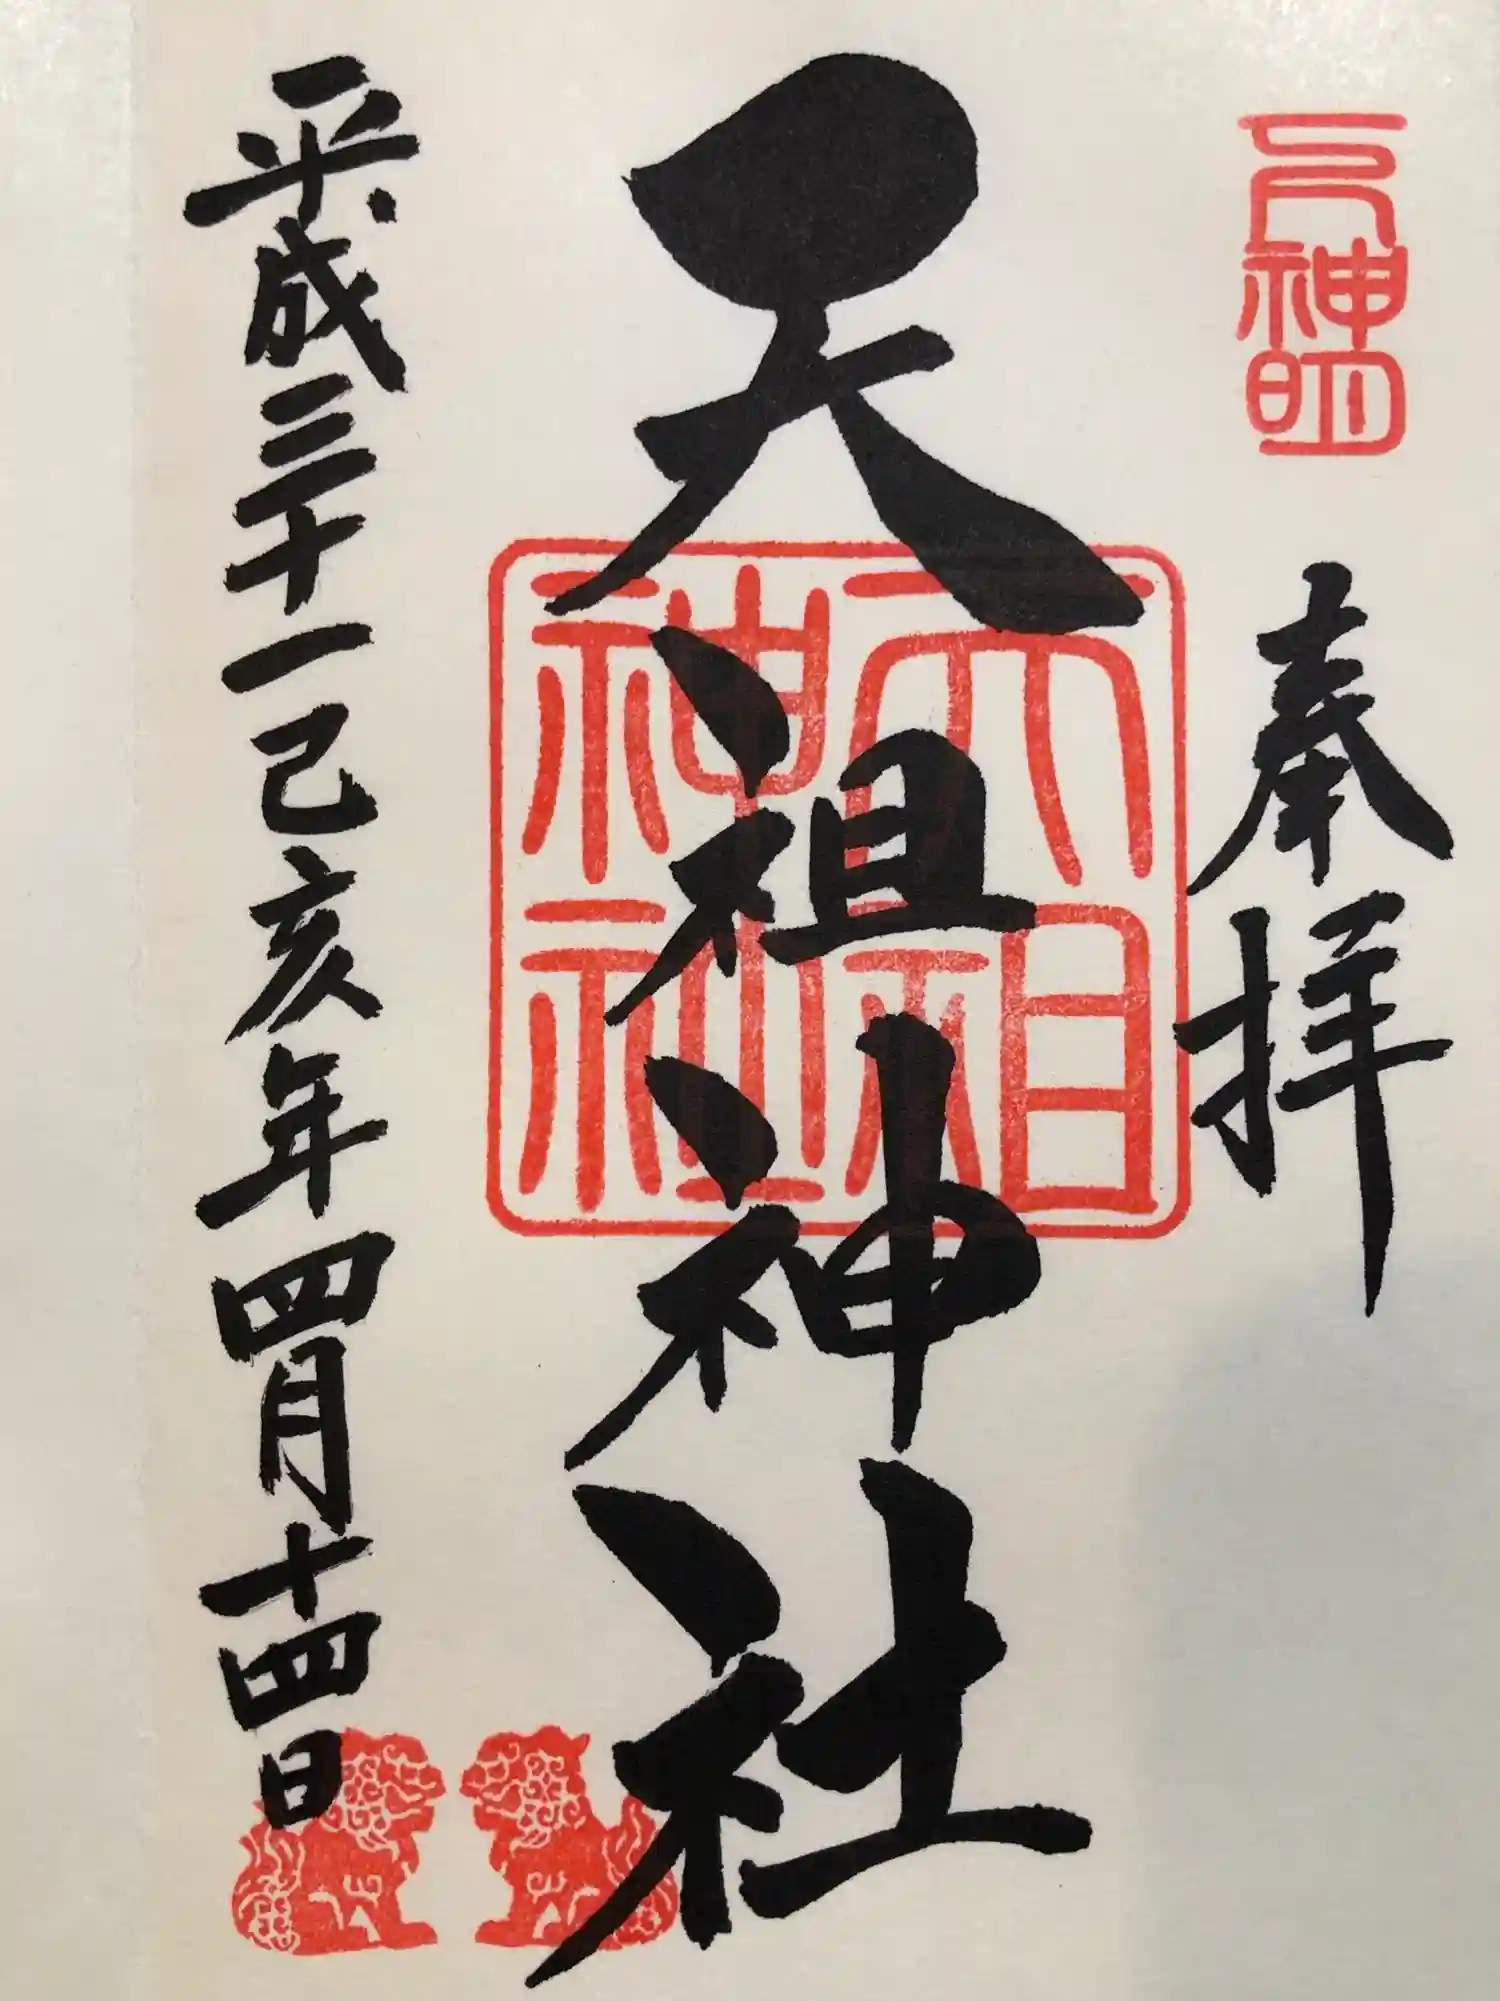 下神明
奉拝
天祖神社
天祖
神社
平成三十一己亥年四月十四日